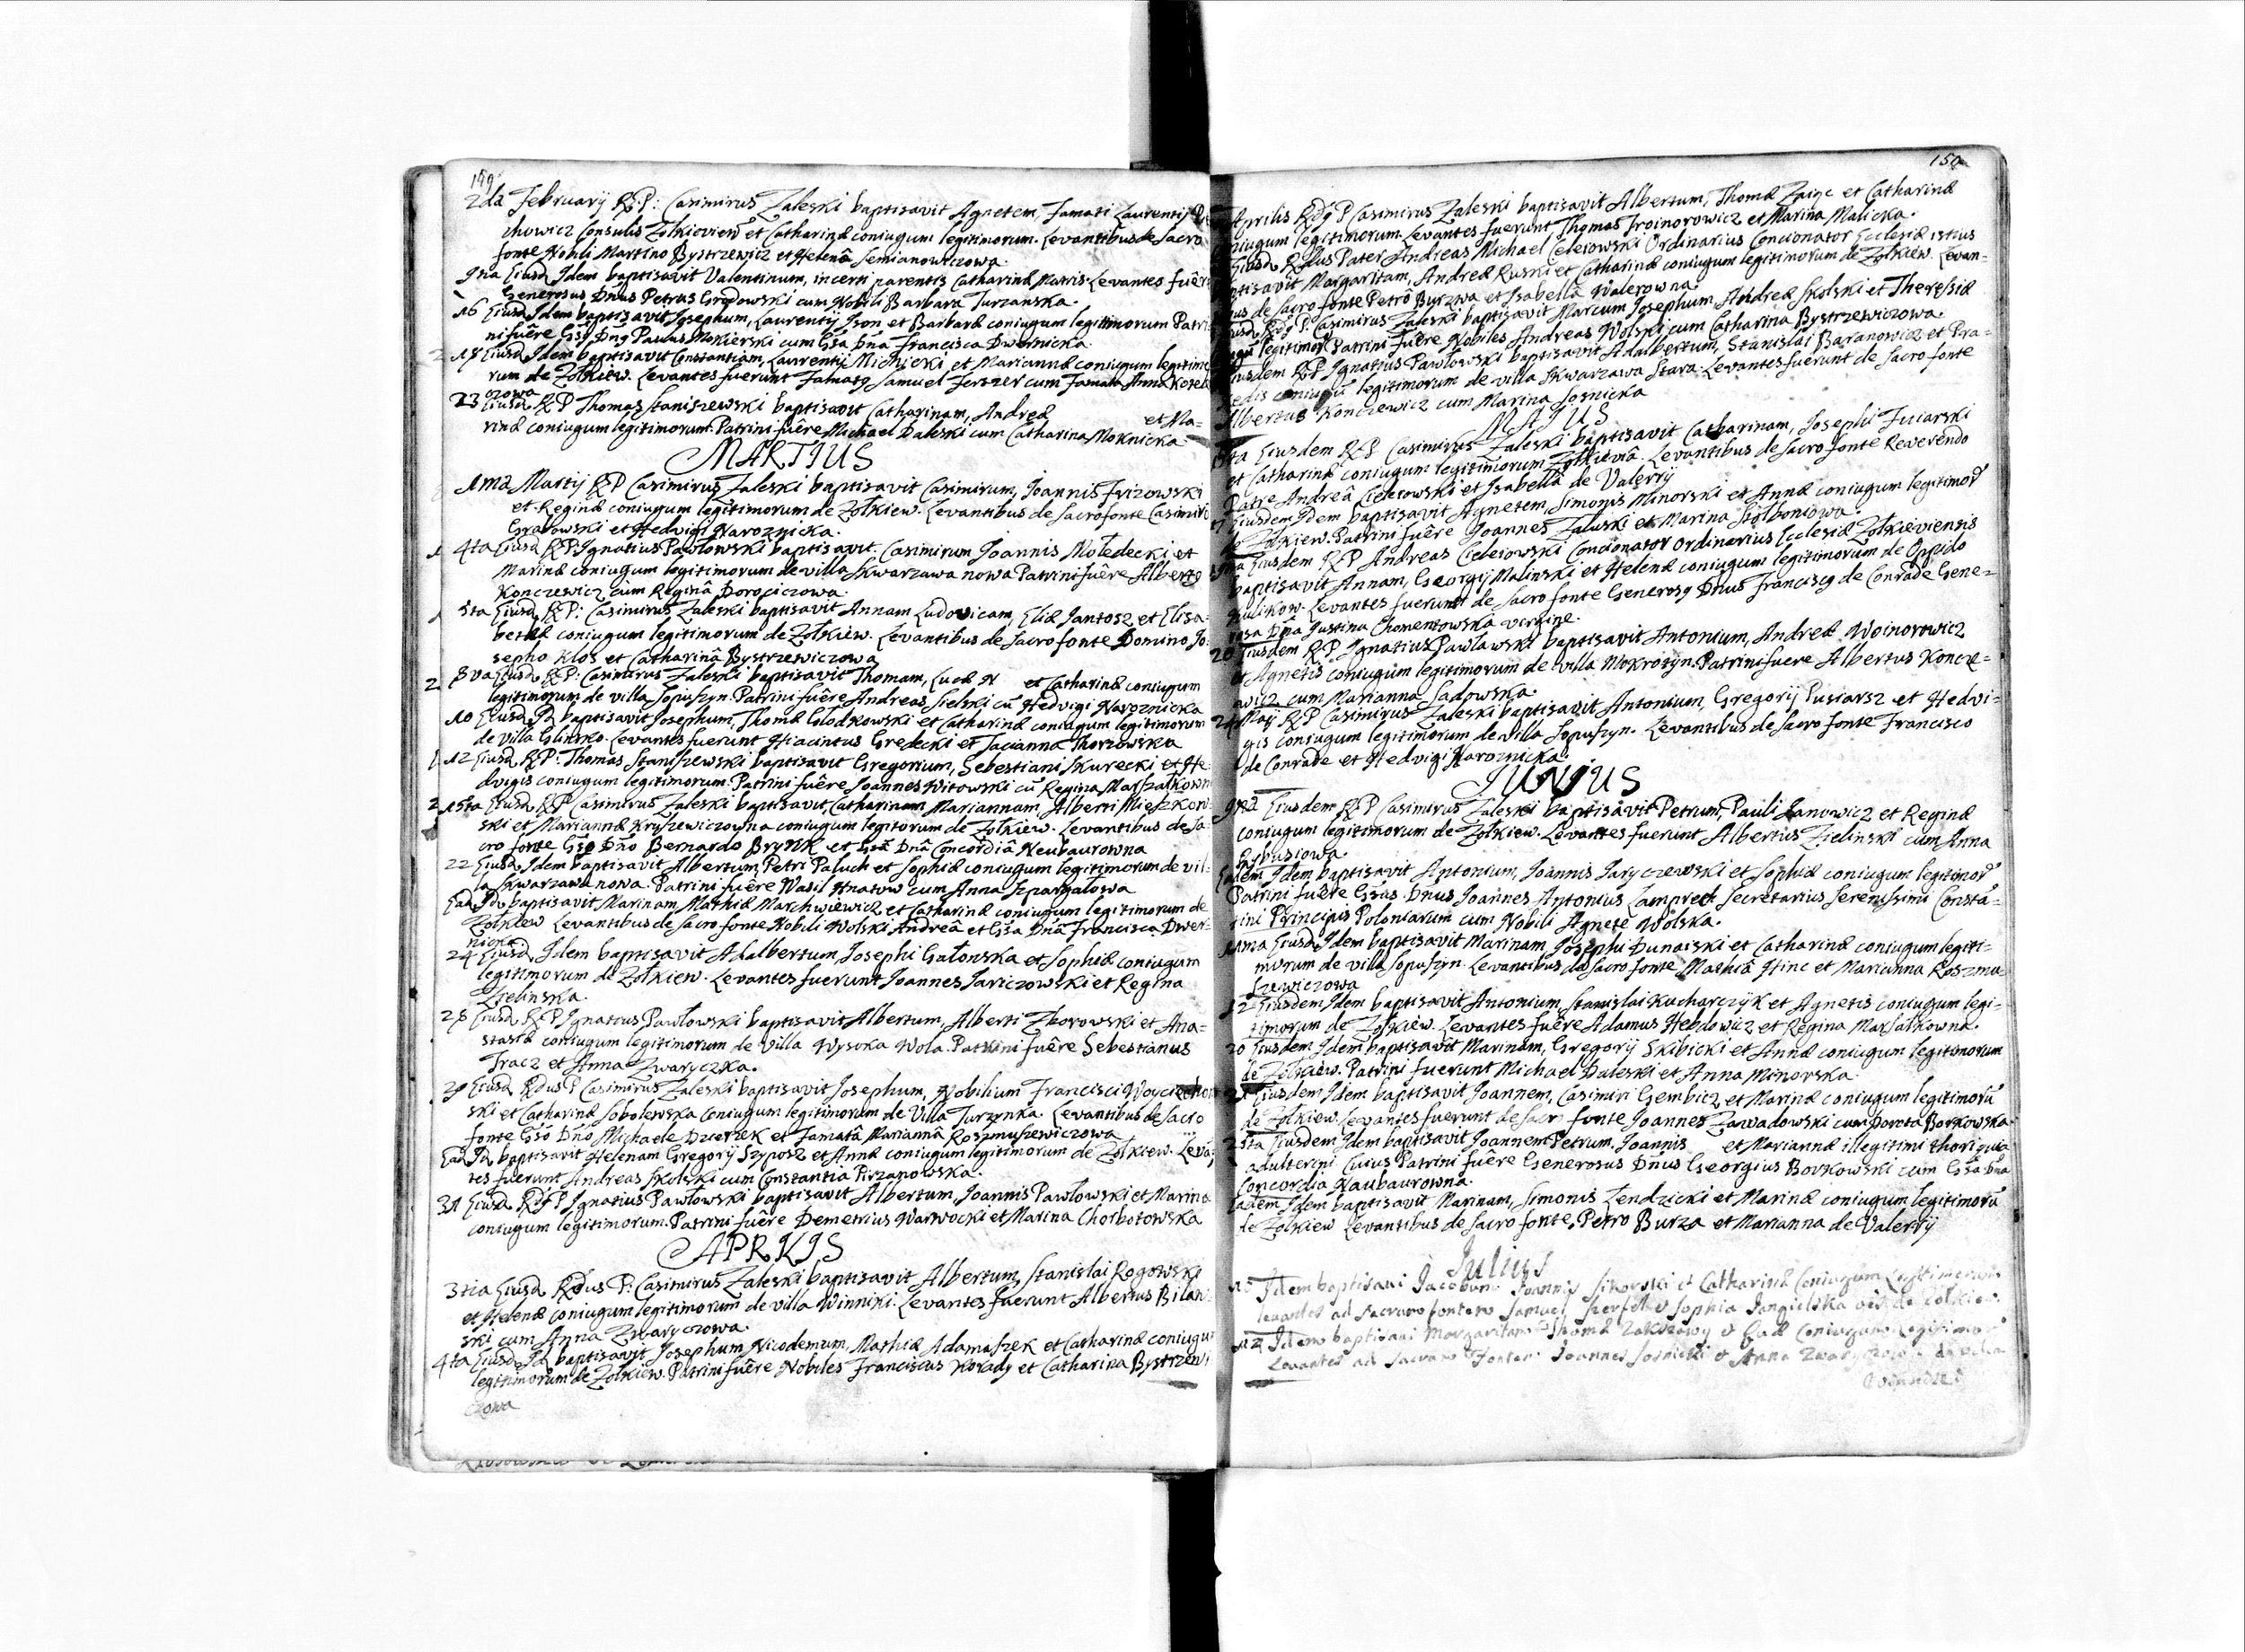 149
2da February R.P: Casimirus Zaleski baptisavit Agnetem, Famati Laurentij
chowicz Consulis Zołkievien et Catharinæ coniugum legitimorum. Levantibus de Sacro
fonte Nobili Martino Bystrzewicz et Helenâ Semianowiczowa.
9na Eiusd Idem baptisavit Valentinum, incerti parentis Catharinæ Matris. Levantes fuêr
Generosus Dnus Petrus Grodowski cum Nobili Barbara Turzanska.
16 Eiusd Idem baptisavit Josephum, Laurentij Json et Barbaræ coniugum legitimorum Patri
ni fuêre Gsg Dng Paulus Mokierski cum Gsa Dna Francisca Dwernicka.
18 Eiusd Idem baptisavit Constantiam, Laurentij Michicki et Mariannæ coniugum legitimo
rum de Zołkiew. Levantes fuerunt Famatg Samuel Ferszer cum Famata Anna
czowa
23 Eiusd R P Thomas Staniszewski baptisavit Catharinam, Andreæ et Ma=
rinæ coniugum legitimorum. Patrini fuêre Michael Daleski cum Catharina Moknicka
MARTIUS
1ma Martij R P Casimirus Zaleski baptisavit Casimirum, Joannis Frizowski
et Reginæ coniugum legitimorum de Zołkiew. Levantibus de Sacro fonte Casimiro
Grabowski et Hedvigi Naroznicka.
4ta Eiusd R P. Ignatius Pawłowski baptisavit. Casimirum Joannis Moledecki et
Marinæ coniugum legitimorum de villa Skwarzawa nowa Patrini fuêre Alberto
Konczewicz cum Reginâ Dorociczowa.
5ta Eiusd R P: Casimirus Zaleski baptisavit Annam Ludovicam, Eliæ Jantosz et Elisa=
bethæ coniugum legitimorum de Zołkiew. Levantibus de Sacro fonte Domino Jo=
sepho Klos et Catharinâ Bystrzewiczowa
8va Eiusd R P: Casimirus Zaleski baptisavit Thomam, Lucæ N et Catharinæ coniugum
legitimorum de villa Sopuszyn. Patrini fuêre Andreas Sielski cu Hedvigi Naroznicka
10 Eiusd Id baptisavit Josephum, Thomæ Głodkowski et Catharinæ coniugum legitimorum
de villa Glinsko. Levantes fuerunt Hiacintus Gredecki et Tacianna Thorzowska
12 Eiusd R P: Thomas Staniszewski baptisavit Gregorium, Sebestiani Skurecki et He
dvigis coniugum legitimorum. Patrini fuêre Joannes Witowski cu Regina Marszałkown
15ta Eiusd R P Casimirus Zaleski baptisavit, Catharinam Mariannam, Alberti Mieszkow
ski et Mariannæ Kryszewiczowna coniugum legitorum de Zołkiew. Levantibus de Sa
cro fonte Gso Dno Bernardo Brynk et Gsâ Dnâ Concordiâ Neubaurowna
22 Eiusd Idem baptisavit Albertum Petri Paluch et Sophiæ coniugum legitimorum de vil=
la Skwarzawa nowa. Patrini fuêre Wasil Hnatow cum Anna Szpargałowa
Ead Id baptisavit Marinam Mathiæ Marchwiewicz et Catharinæ coniugum legitimorum de
Zołkiew Levantibus de Sacro fonte Nobili Wolski Andreâ et Gsa Dnâ Francisca Dwer=
nicka.
24 Eiusd Idem baptisavit Adalbertum, Josephi Gałonska et Sophiæ coniugum
legitimorum de Zołkiew. Levantes fuerunt Joannes Jariczowski et Regina
Zielinska.
28 Eiusd R P Ignatius Pawłowski baptisavit Albertum, Alberti Zborowski et Ana=
stasiæ coniugum legitimorum de villa Wysoka Wola. Patrini fuêre Sebestianus
Tracz et Anna Zwaryczka.
29 Eiusd Rdus P Casimirus Zaleski baptisavit Josephum, Nobilium Francisci
ski et Catharinæ Sobolewska Coniugum legitimorum de Villa Turzynka. Levantibus de Sacro
fonte Gso Dno Michaele Dzierzek et Famatâ Mariannâ Roszmuszewiczowa
Ead Id baptisavit Helenam Gregorij Szyposz et Annæ coniugum legitimorum de Zołkiew. Leva=
tes fuerunt Andreas Skolski cum Constantia Pirzanowska.
31 Eiusd Rdg P Ignatius Pawłowski baptisavit Albertum Joannis Pawłowski et Marina
coniugum legitimorum. Patrini fuêre Demetrius Warwocki et Marina Chorbotowska
APRILIS
3tia Eiusd Rdus P: Casimirus Zaleski baptisavit Albertum, Stanislai Rogowski
et Helenæ coniugum legitimorum de villa Winniki. Levantes fuerunt Albertus Bilaw
ski cum Anna Zwaryczowa.
4ta Eiusd Id baptisavit Josephum Nicodemum, Mathiæ Adamaszek et Catharinæ coniugu
legitimorum de Zołkiew. Patrini fuêre Nobiles Franciscus Kokady et Catharina Bystrzewi
czowa
150
Aprilis Rdg P Casimirus Zaleski baptisavit Albertum, Thomæ Zaigc et Catharinæ
niugum legitimorum. Levantes fuerunt Thomas Troinorowicz et Marina Malicka.
Eiusd Rdus Pater Andreas Michael Celerowski Ordinarius Concionator Ecclesiæ istius
ptisavit Margaritam, Andreæ Ruski et Catharinæ coniugum legitimorum de Zołkiew. Levan=
us de Sacro fonte Petrô Burzwa et Isabellâ Walerowna.
Eiusd Rdg P. Casimirus Zaleski baptisavit Marcum Josephum, Andreæ Skolski et Theresiæ
legitimor Patrini fuêre Nobiles Andreas Wolski cum Catharina Bystrzewiczowa.
iusdem R P Ignatius Pawłowski baptisavit Adalbertum, Stanislai Baranowicz et Pra=
xedis coniugu legitimorum de villa Skwarzawa Stara. Levantes fuerunt de Sacro fonte
Albertus Konczewicz cum Marina Sosnicka
MAIUS
ta Eiusdem R P Casimirus Zaleski baptisavit Catharinam, Josephi Fuiarski
et Catharinæ coniugum legitimorum Zołkieviâ. Levantibus de Sacro fonte Reverendo
Patre Andreâ Cielerowski et Isabellâ de Valerÿ
7 Eiusdem Idem baptisavit Agnetem, Simonis Minorski et Annæ coniugum legitimor
de Zołkiew. Patrini fuêre Joannes Zaluski et Marina Stołboniowa.
Eiusdem R P Andreas Cielerowski Concionator Ordinarius Ecclesiæ Zołkieviensis
baptisavit Annam, Georgij Malinski et Helenæ coniugum legitimorum de Oppido
Kulikow. Levantes fuerunt de Sacro fonte Generosg Dnus Franciscg de Conrade Gene=
rosa Dna Justina Chomentowska virgine.
20 Eiusdem R P Ignatius Pawlawski baptisavit Antonium, Andreæ Woinorowicz
et Agnetis coniugum legitimorum de villa Mokrotyn. Patrini fuere Albertus Koncze=
wicz cum Marianna Sadowska.
24 Maij R P Casimirus Zaleski baptisavit Antonium, Gregorij Pusiarsz et Hedvi=
gis coniugum legitimorum de villa Sopuszyn. Levantibus de Sacro fonte Francisco
de Conrade et Hedvigi Naroznicka.
JUNIUS
9na Eiusdem R P Casimirus Zaleski baptisavit Petrum, Pauli Janowicz et Reginæ
coniugum legitimorum de Zołkiew. Levantes fuerunt Albertus Zielinski cum Anna
Eadem Idem baptisavit Antonium, Joannis Jaryczewski et Sophiæ coniugum legitimor
Patrini fuêre Gsus Dnus Joannes Antonius Lamprecht Secretarius Serenissimi Consta=
tini Principis Poloniarum cum Nobili Agnete Wolska.
11ma Eiusd Idem baptisavit Marinam, Josephi Dunaiski et Catharinæ coniugum legiti=
morum de villa Sopuszyn. Levantibus de Sacro fonte Mathiâ Hinc et Marianna Roszmu=
szewiczowa
12 Eiusdem Idem baptisavit Antonium, Stanislai Kucharczyk et Agnetis coniugum legi=
timorum de Zołkiew. Levantes fuêre Adamus Hebdowicz et Regina Marsałkowna.
20 Eiusdem Idem baptisavit Marinam, Gregorij Skibicki et Annæ coniugum legitimorum
de Zołkiew. Patrini fuerunt Michael Daleski et Anna Minorska
21 Eiusdem Idem baptisavit Joannem, Casimiri Gembicz et Marinæ coniugum legitimoru
de Zołkiew. Levantes fuerunt de Sacr fonte Joannes Zawadowski cum Dorota Borkowska.
25ta Eiusdem Idem baptisavit Joannem Petrum, Joannis et Mariannæ illegitimi thori quia
adulterini Cuius Patrini fuêre Generosus Dnus Georgius Borkowski cum Gsa Dna
Concordia Naubaurowna.
Eadem Idem baptisavit Marinam, Simonis Zendzicki et Marinæ coniugum legitimoru
de Zołkiew Levantibus de Sacro fonte, Petro Burza et Marianna de Valerÿ
Julius
Idem baptisavi Jacobum Joannis Sikorski et Catharinæ Coniugum Legitimorum
levantes ad Sacrum fontem Samuel Szerfel et Sophia Jangielska de Zołkiew.
12 Idem baptisavi Margaritam Thomæ et Evæ Coniugum Legitimor
Levantes ad Sacrum Fontem Joannes Sosnicki et Anna Zwaryczowa